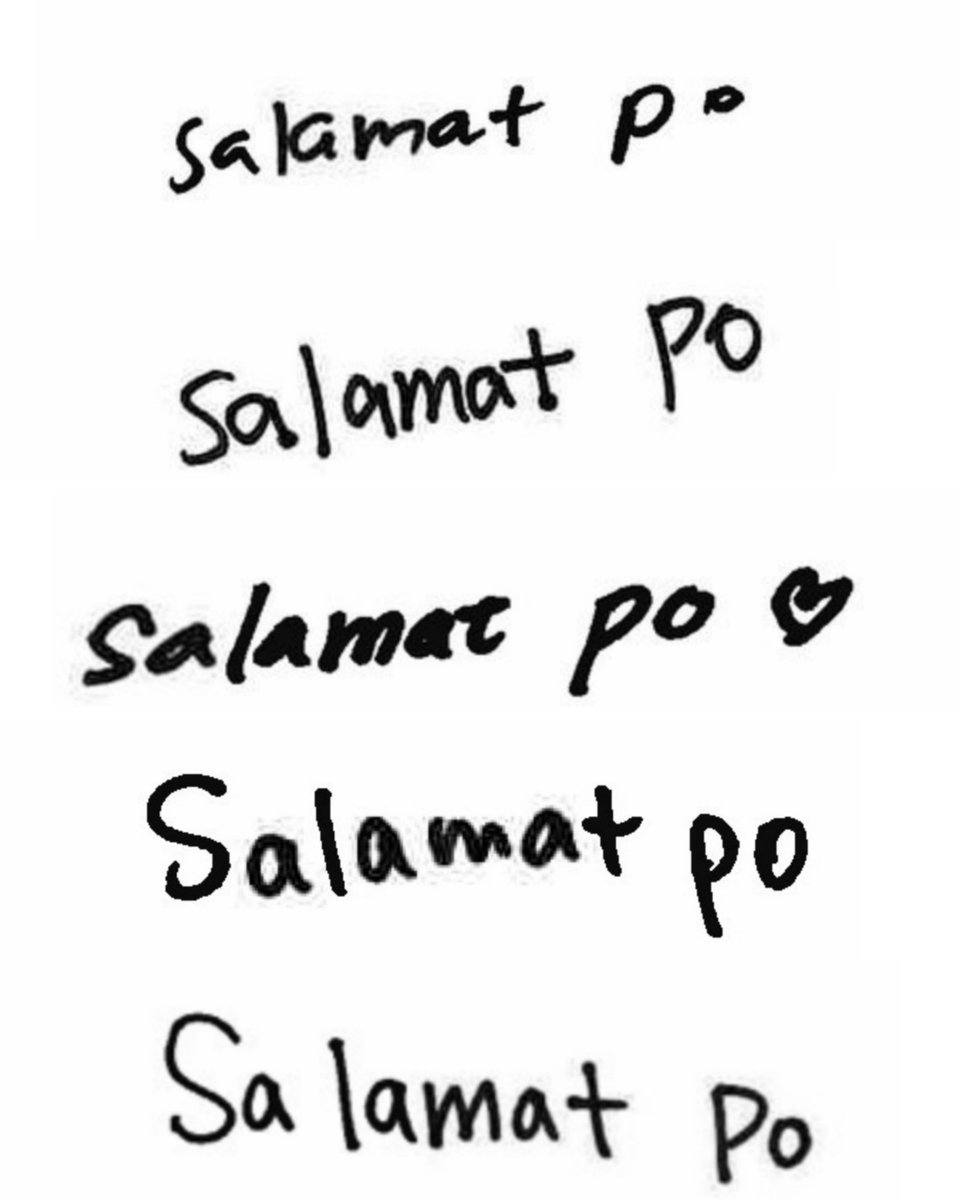 salamat po
Salamat po
salamat po ♡
Salamat po
Salamat po